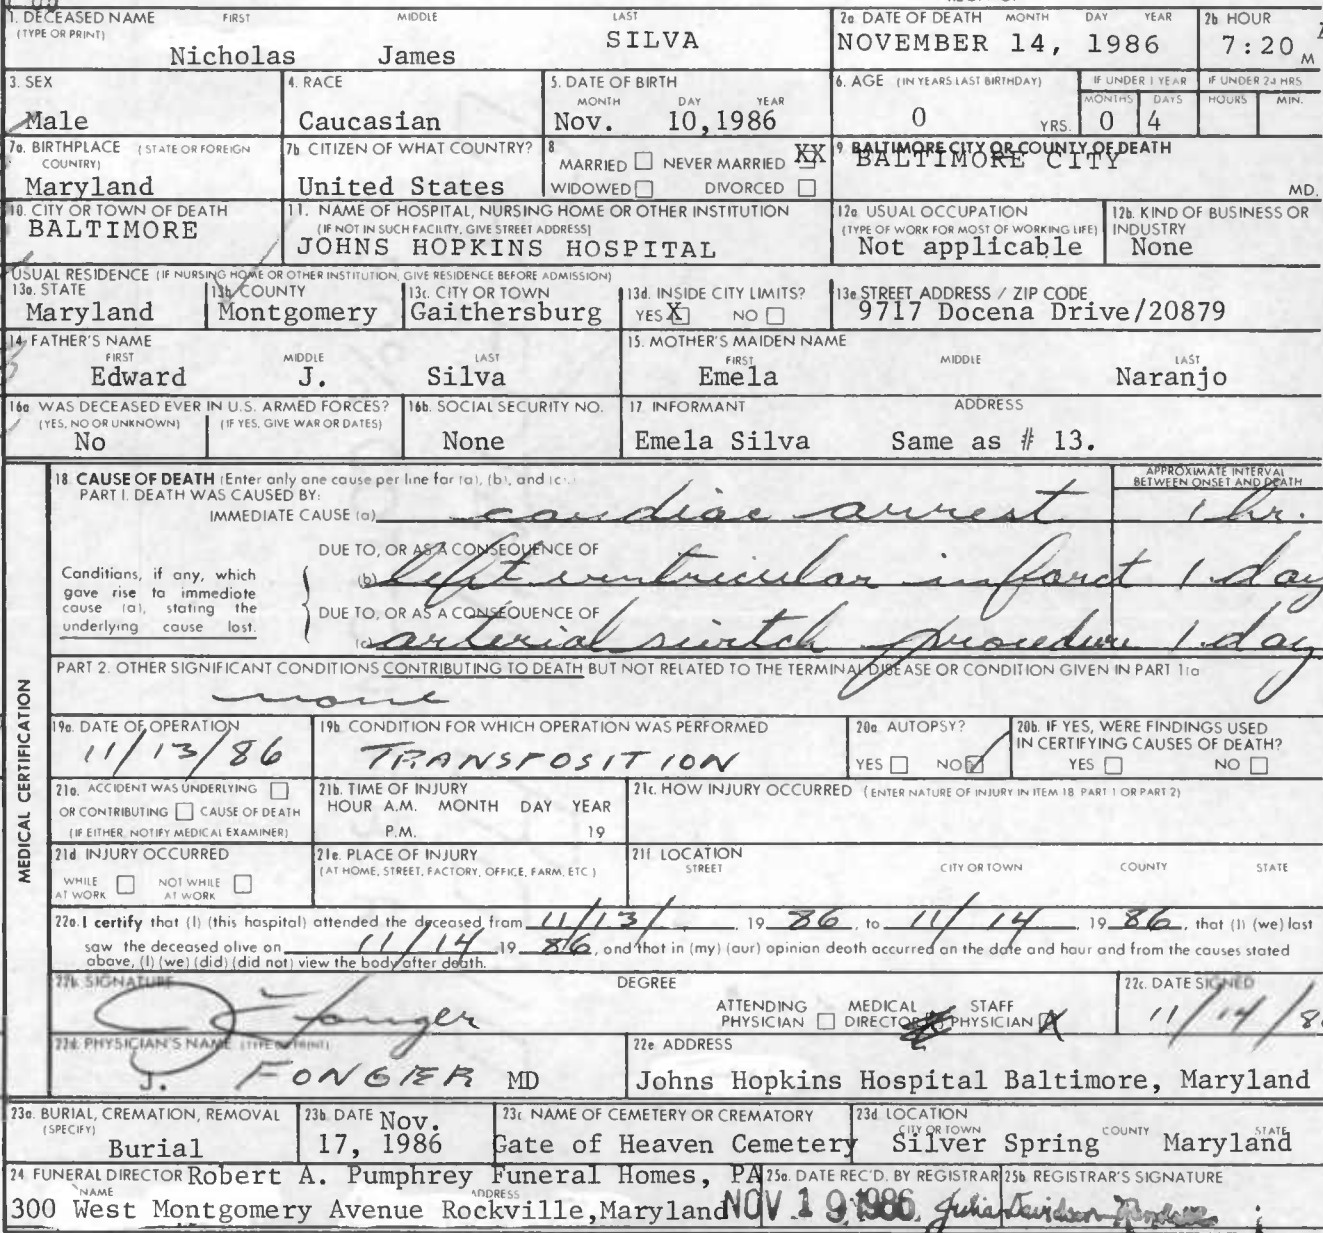 1. DECEASED NAME FIRST MIDDLE LAST
(TYPE OR PRINT)
Nicholas James SILVA
2a. DATE OF DEATH MONTH DAY YEAR
NOVEMBER 14, 1986
2b HOUR
7:20 M
3. SEX
Male
4. RACE
Caucasian
5. DATE OF BIRTH
MONTH DAY YEAR
Nov. 10,1986
6. AGE (IN YEARS LAST BIRTHDAY)
0 YRS.
IF UNDER 1 YEAR
MONTHS DAYS
0 4
IF UNDER 24 HRS
HOURS MIN.
7a. BIRTHPLACE (STATE OR FOREIGN
COUNTRY)
Maryland
7b CITIZEN OF WHAT COUNTRY?
United States
8
MARRIED NEVER MARRIED XX
WIDOWED DIVORCED
9 BALTIMORE CITY OR COUNTY OF DEATH
BALTIMORE CITY
MD.
10. CITY OR TOWN OF DEATH
BALTIMORE
11. NAME OF HOSPITAL, NURSING HOME OR OTHER INSTITUTION
(IF NOT IN SUCH FACILITY, GIVE STREET ADDRESS)
JOHNS HOPKINS HOSPITAL
12a USUAL OCCUPATION
(TYPE OF WORK FOR MOST OF WORKING LIFE)
Not applicable
12b. KIND OF BUSINESS OR
INDUSTRY
None
USUAL RESIDENCE (IF NURSING HOME OR OTHER INSTITUTION, GIVE RESIDENCE BEFORE ADMISSION)
13a. STATE
Maryland
13b COUNTY
Montgomery
13c. CITY OR TOWN
Gaithersburg
13d. INSIDE CITY LIMITS?
YES X NO
13e STREET ADDRESS / ZIP CODE
9717 Docena Drive/20879
14 FATHER'S NAME
FIRST MIDDLE LAST
Edward J. Silva
15. MOTHER'S MAIDEN NAME
FIRST MIDDLE LAST
Emela Naranjo
16a WAS DECEASED EVER IN U.S. ARMED FORCES?
(YES, NO OR UNKNOWN) (IF YES, GIVE WAR OR DATES)
No
16b. SOCIAL SECURITY NO.
None
17 INFORMANT ADDRESS
Emela Silva Same as # 13.
MEDICAL CERTIFICATION
18 CAUSE OF DEATH (Enter only one cause per line for (a), (b), and (c).)
PART I. DEATH WAS CAUSED BY:
APPROXIMATE INTERVAL
BETWEEN ONSET AND DEATH
IMMEDIATE CAUSE (a) cardiac arrest 1 hr.
DUE TO, OR AS A CONSEQUENCE OF
Conditions, if any, which
gave rise to immediate
cause (a), stating the
underlying cause lost.
(b) left ventricular infarct 1 day
DUE TO, OR AS A CONSEQUENCE OF
(c) arterial switch procedure 1 day
PART 2. OTHER SIGNIFICANT CONDITIONS CONTRIBUTING TO DEATH BUT NOT RELATED TO THE TERMINAL DISEASE OR CONDITION GIVEN IN PART 1(a
none
19a. DATE OF OPERATION
11/13/86
19b CONDITION FOR WHICH OPERATION WAS PERFORMED
TRANSPOSITION
20a AUTOPSY?
YES NO
20b. IF YES, WERE FINDINGS USED
IN CERTIFYING CAUSES OF DEATH?
YES NO
21a. ACCIDENT WAS UNDERLYING
OR CONTRIBUTING CAUSE OF DEATH
(IF EITHER, NOTIFY MEDICAL EXAMINER)
21b. TIME OF INJURY
HOUR A.M. MONTH DAY YEAR
P.M. 19
21c. HOW INJURY OCCURRED (ENTER NATURE OF INJURY IN ITEM 18 PART 1 OR PART 2)
21d INJURY OCCURRED
WHILE AT WORK NOT WHILE AT WORK
21e. PLACE OF INJURY
(AT HOME, STREET, FACTORY, OFFICE, FARM, ETC.)
21f LOCATION
STREET CITY OR TOWN COUNTY STATE
22a. I certify that (I) (this hospital) attended the deceased from 11/13/ , 19 86, to 11/14 19 86, that (I) (we) last
saw the deceased alive on 11/14 19 86, and that in (my) (our) opinion death occurred on the date and hour and from the causes stated
above, (I) (we) (did) (did not) view the body after death.
22b. SIGNATURE
J Fonger
DEGREE
ATTENDING PHYSICIAN MEDICAL DIRECTOR STAFF PHYSICIAN X
22c. DATE SIGNED
11/14/8
22d. PHYSICIAN'S NAME (TYPE OR PRINT)
J. FONGER MD
22e ADDRESS
Johns Hopkins Hospital Baltimore, Maryland
23a. BURIAL, CREMATION, REMOVAL
(SPECIFY)
Burial
23b. DATE Nov.
17, 1986
23c NAME OF CEMETERY OR CREMATORY
Gate of Heaven Cemetery
23d LOCATION
CITY OR TOWN COUNTY STATE
Silver Spring Maryland
24 FUNERAL DIRECTOR Robert A. Pumphrey Funeral Homes, PA
NAME ADDRESS
300 West Montgomery Avenue Rockville,Maryland
25a. DATE REC'D. BY REGISTRAR
NOV 19 1986
25b REGISTRAR'S SIGNATURE
Julia Davidson